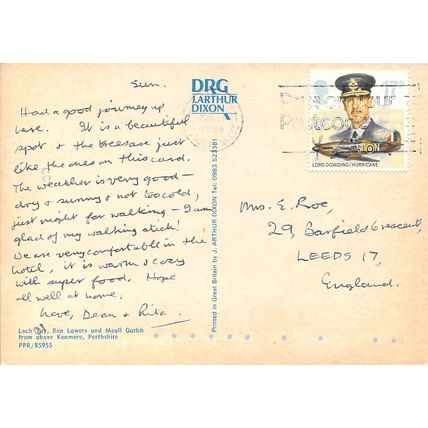 Sun.
Had a good journey up
here. It is a beautiful
spot & the trees are just
like the ones on this card.
The weather is very good –
dry & sunny & not too cold,
just right for walking – I am
glad of my walking stick!
We are very comfortable in the
hotel, it is warm & cosy
with super food. Hope
all well at home.
Love, Dean & Rita.
Loch Tay, Ben Lawers and Meall Garbh
from above Kenmore, Perthshire
PPR/85955
DRG
J. ARTHUR
DIXON
Printed in Great Britain by J. ARTHUR DIXON Tel: 0983 523381
17p
Postcode
LORD DOWDING/HURRICANE
Mrs. E. Roe,
29, Barfield Crescent,
LEEDS 17,
England.